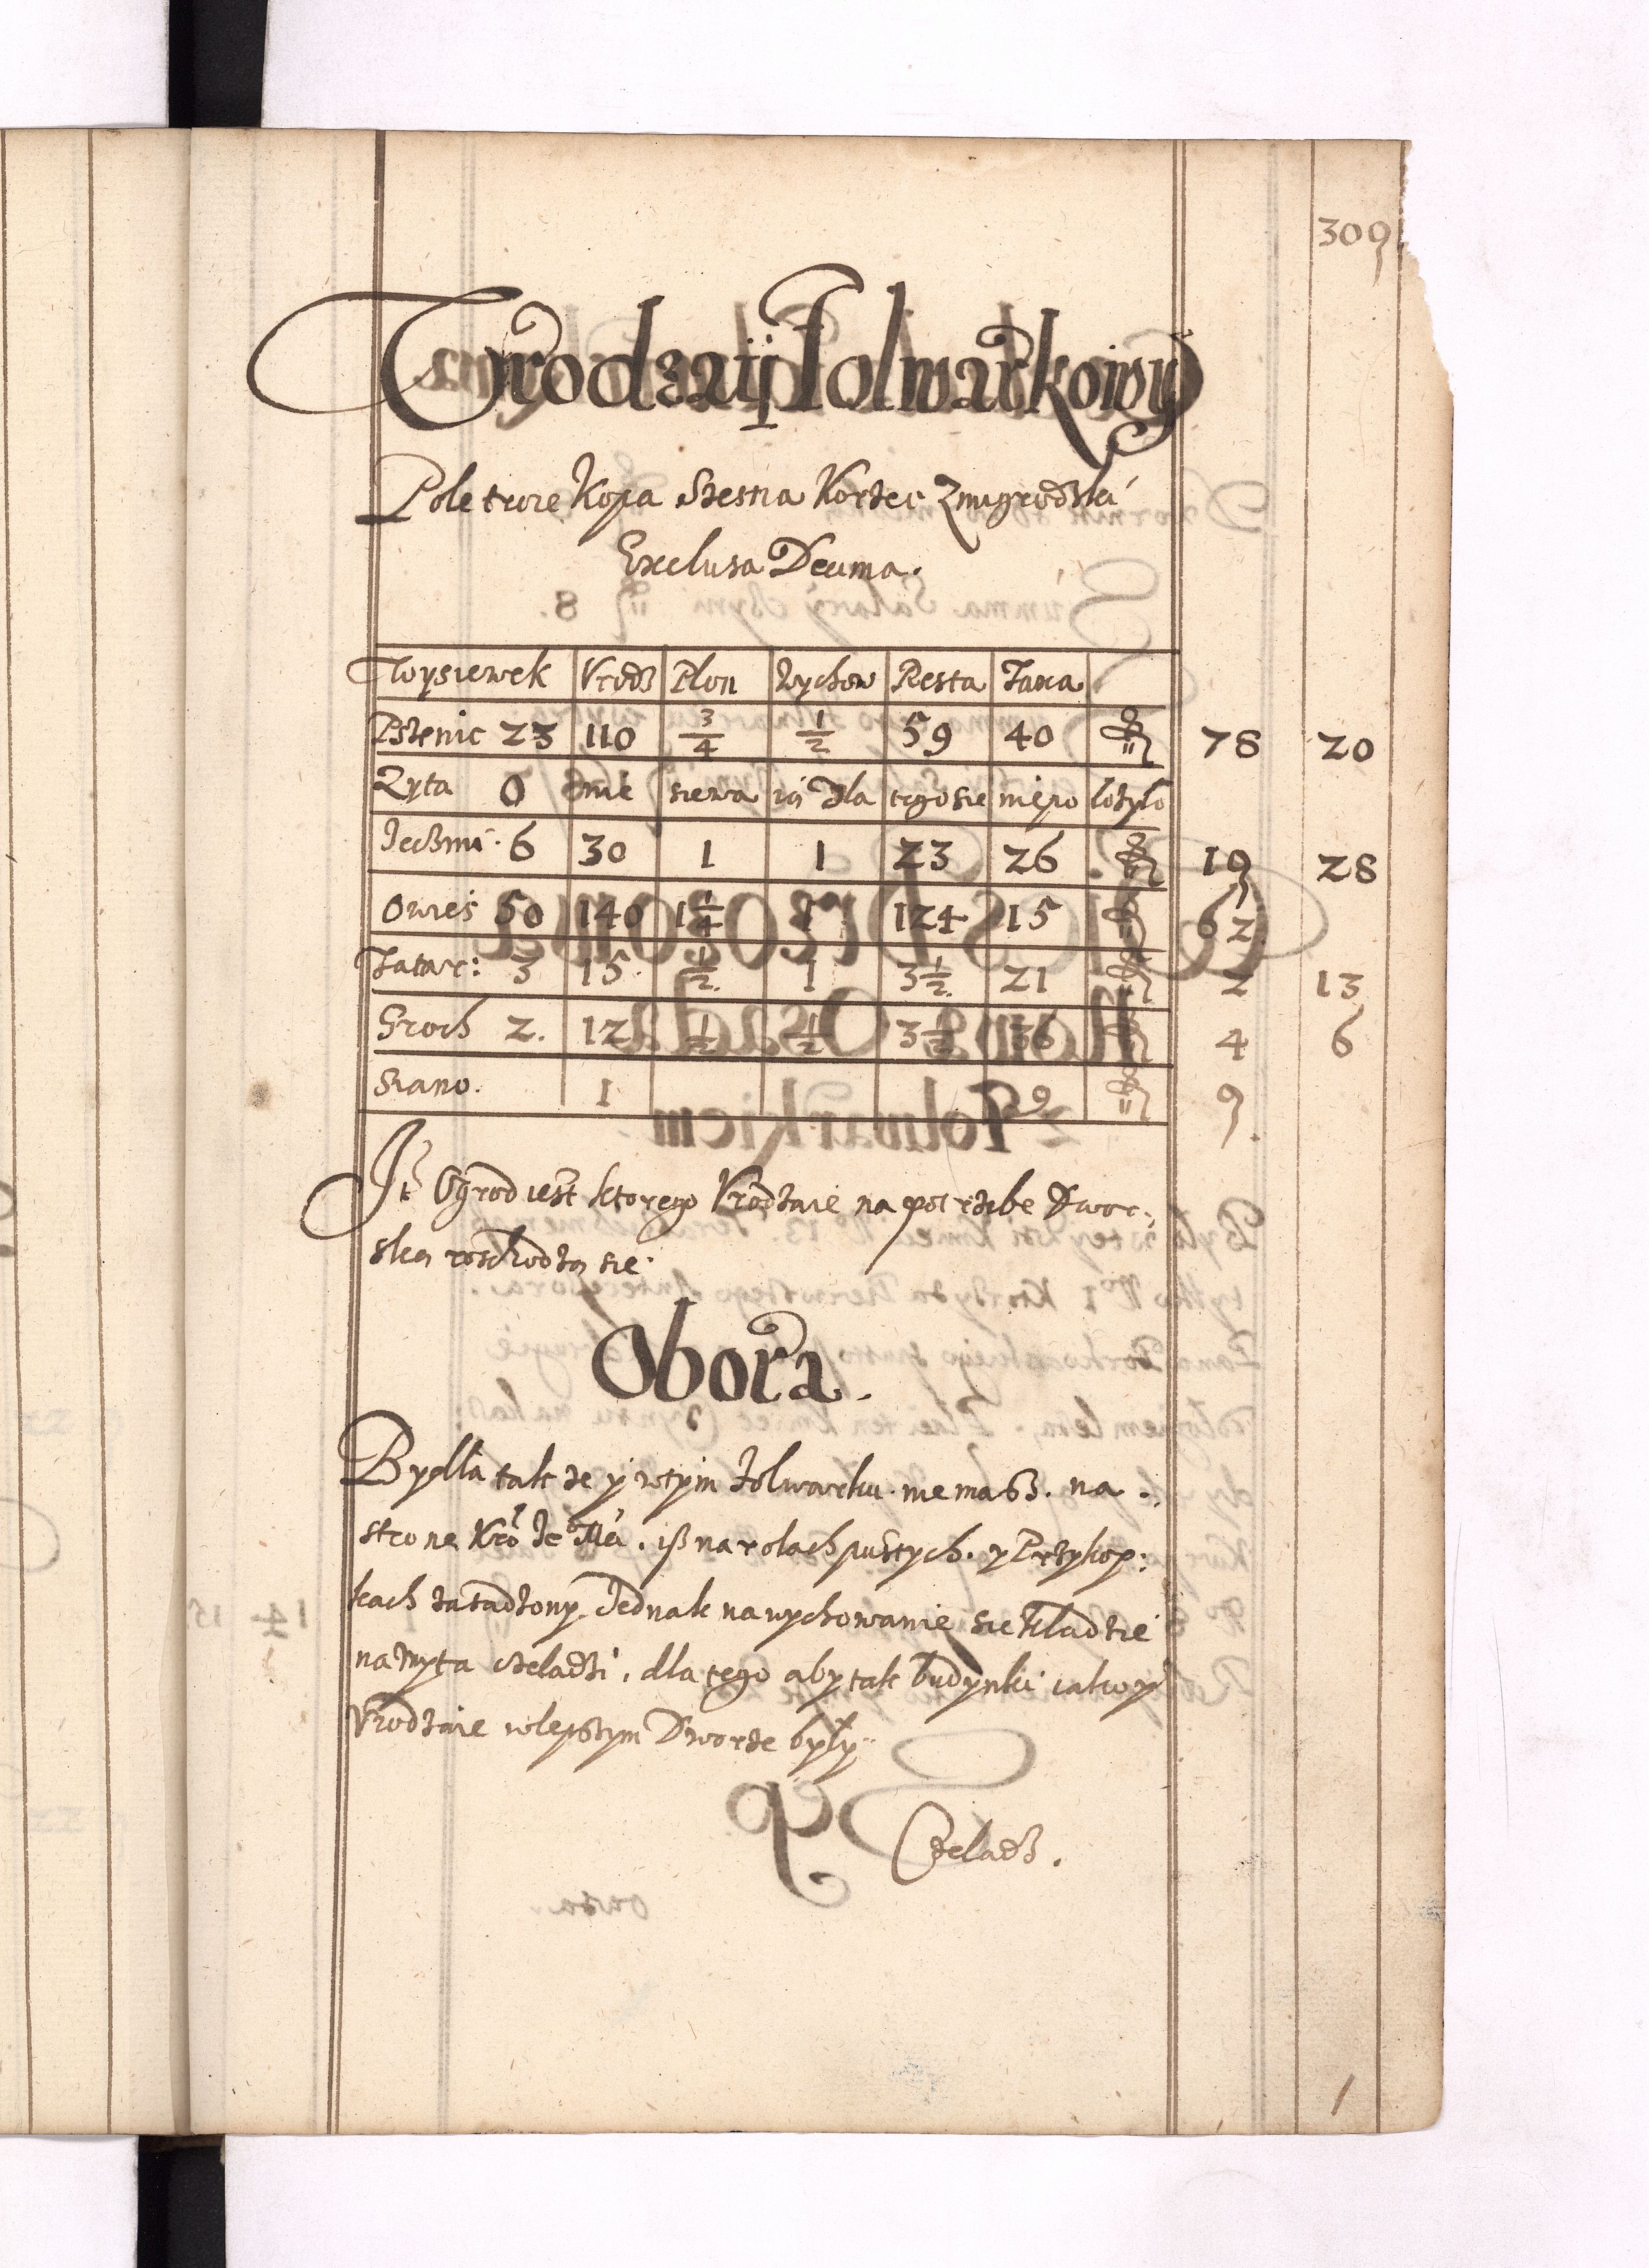 309
Urodzaÿ Folwarkowy
Pole troie Kopa Szesna Korzec Zmigrodski
Exclusa Decima.
Wysiewek Vrodz Plon Wychow Resta Taxa
Pszenic 23 110 3/4 1/2 59 40 78 20
Zyta 0 nie siewa ią dla tego sie nie po lożyło
Jeczmi. 6 30 1 1 23 26 19 28
Owies 50 140 1 1/4 1 124 15 62
Tatar: 3 15 1/2 1 3 1/2 21 2 13
Groch 2. 12 1/2 1/2 3 1/2 36 4 6
Siano. 1 9 9.
It Ogrod iest ktorego Vrodzaie na potrzebe Dwor-
ską roschodzą sie.
Obora.
Bydła tak ze y w tym folwarku nie masz. na
strone Kro Je Ma. isz na rolach pustych. y Przykop:
kach zasadzony. Jednak na wychowanie sie kladzie
na myta czeladzi, dla tego aby tak budynki iako y
Vrodzaie w lepszym Dworze były
Czeladz.